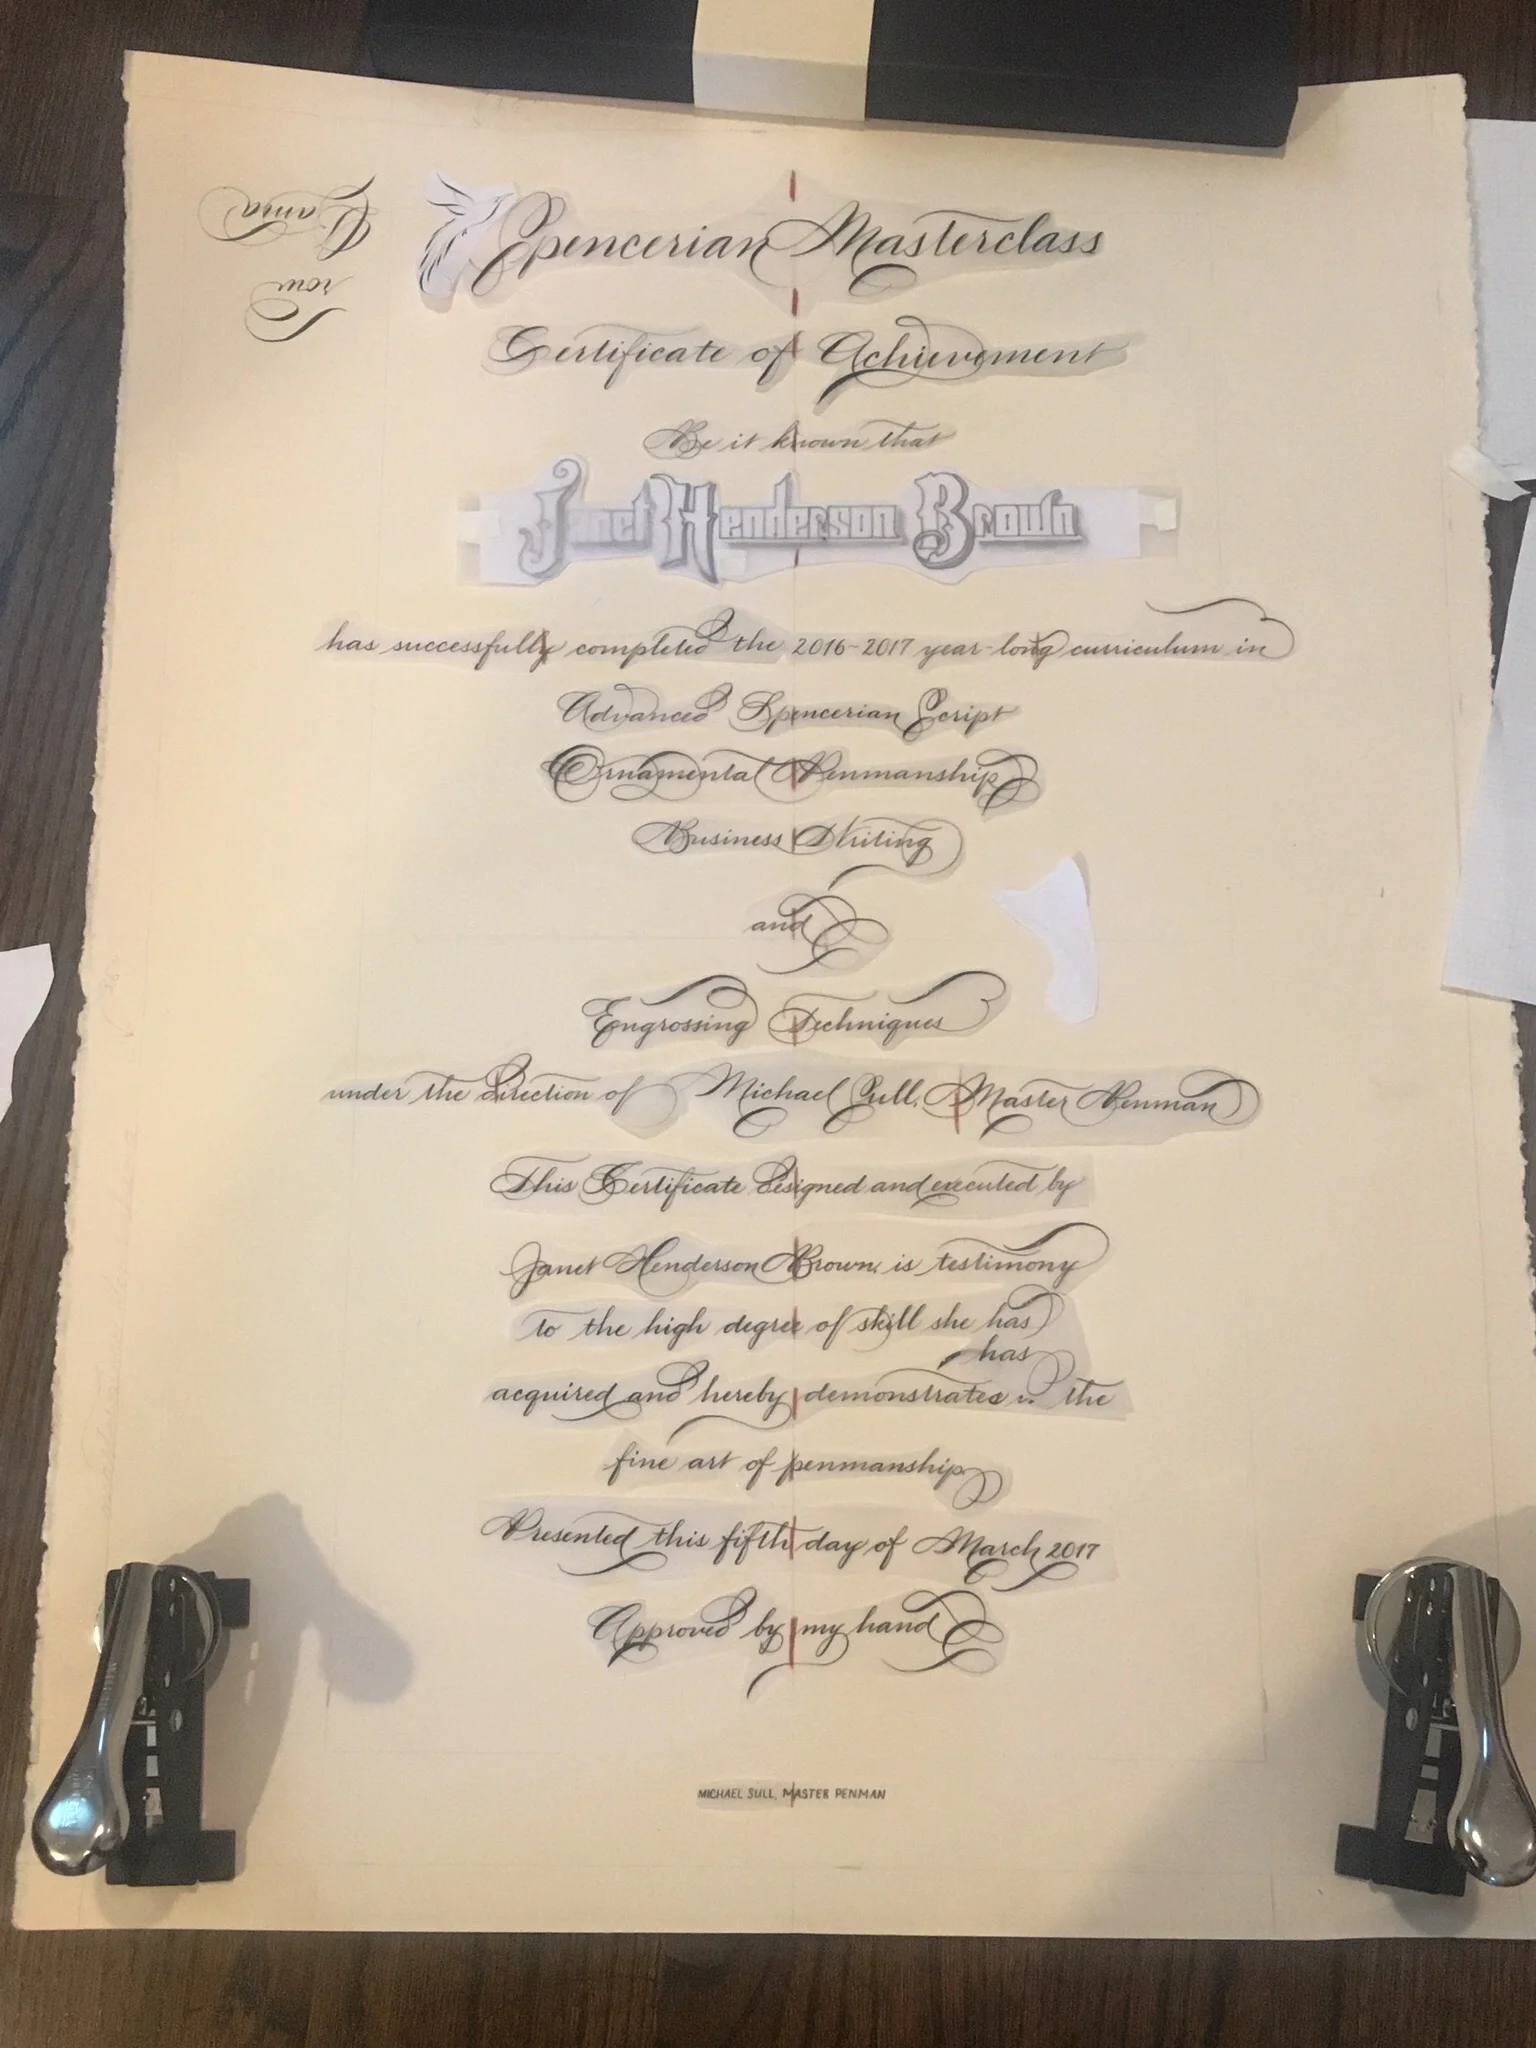 Spencerian Masterclass
Certificate of Achievement
Be it known that
Janet Henderson Brown
has successfully completed the 2016-2017 year-long curriculum in
Advanced Spencerian Script
Ornamental Penmanship
Business Writing
and
Engrossing Techniques
under the direction of Michael Sull, Master Penman
This Certificate designed and executed by
Janet Henderson Brown, is testimony
to the high degree of skill she has
has
acquired and hereby demonstrates in the
fine art of penmanship
Presented this fifth day of March 2017
Approved by my hand
MICHAEL SULL, MASTER PENMAN